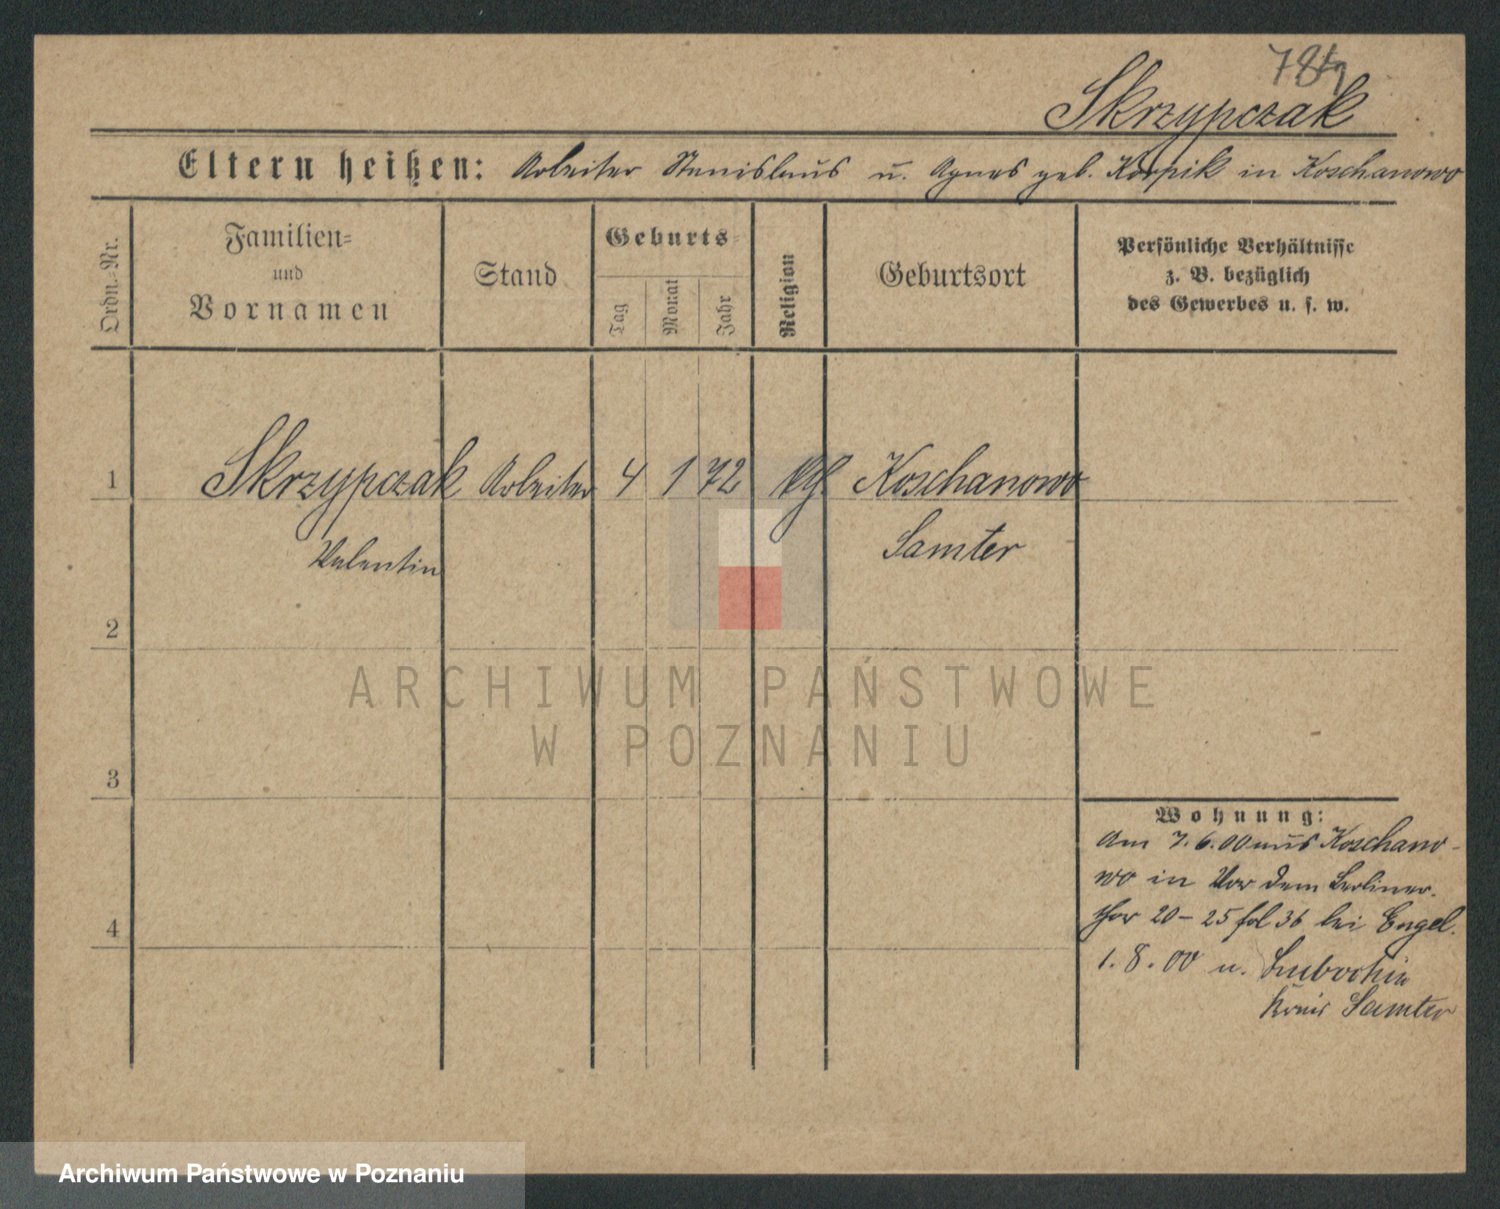 784
Skrzypczak
Eltern heißen: Arbeiter Stanislaus u. Agnes geb. Korpik in Koschanowo
Ordn.-Nr.
Familien- und Vornamen
Stand
Geburts-
Tag
Monat
Jahr
Religion
Geburtsort
Persönliche Verhältnisse
z. B. bezüglich
des Gewerbes u. s. w.
1 Skrzypczak Arbeiter 4 1 72 kth Koschanowo
Valentin Samter
2
ARCHIWUM PAŃSTWOWE
W POZNANIU
3
Wohnung:
Am 7.6.00 aus Koschano-
wo in Vor dem Berliner-
thor 20-25 fol 36 bei Engel.
4
1.8.00 n.
Kreis Samter
Archiwum Państwowe w Poznaniu